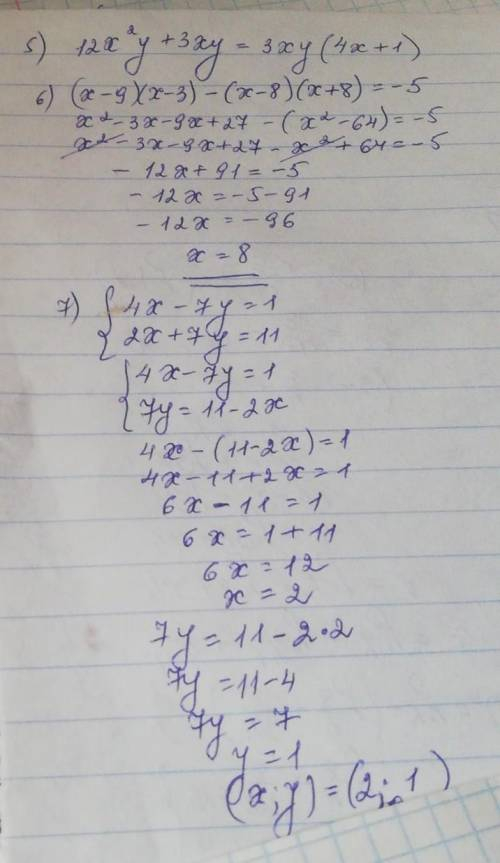 5) 12x²y + 3xy = 3xy (4x + 1)
6) (x-9)(x-3) - (x-8)(x+8) = -5
x² - 3x - 9x + 27 - (x² - 64) = -5
x² - 3x - 9x + 27 - x² + 64 = -5
- 12x + 91 = -5
- 12x = -5 - 91
- 12x = -96
x = 8
7) { 4x - 7y = 1
2x + 7y = 11
{ 4x - 7y = 1
7y = 11 - 2x
4x - (11 - 2x) = 1
4x - 11 + 2x = 1
6x - 11 = 1
6x = 1 + 11
6x = 12
x = 2
7y = 11 - 2•2
7y = 11 - 4
7y = 7
y = 1
(x; y) = (2; 1)